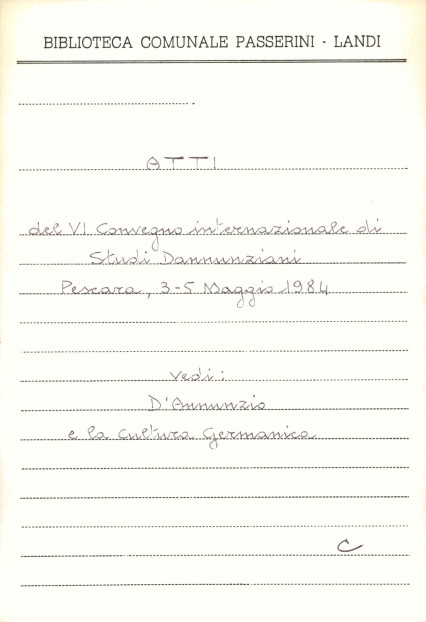 BIBLIOTECA COMUNALE PASSERINI - LANDI
ATTI
del VI Convegno internazionale di
Studi Dannunziani
Pescara, 3-5 Maggio 1984
vedi:
D'Annunzio
e la cultura Germanica
C